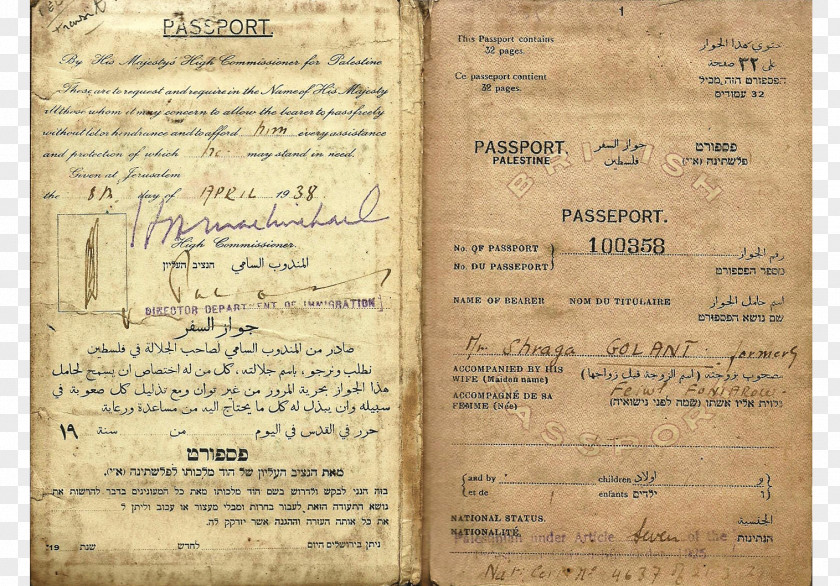 transit
PASSPORT.
By His Majesty's High Commissioner for Palestine
These are to request and require in the Name of His Majesty
all those whom it may concern to allow the bearer to pass freely
without let or hindrance and to afford him every assistance
and protection of which he may stand in need.
Given at Jerusalem
the 8th day of APRIL 1938
High Commissioner.
המندوب السامي הנציב העליון
DIRECTOR DEPARTMENT OF IMMIGRATION
جواز السفر
صادر من المندوب السامي لصاحب الجلالة في فلسطين
نطلب ونرجو، باسم جلالته، كل من له اختصاص ان يسمح لحامل
هذا الجواز بحرية المرور من غير توان ومع تذليل كل صعوبة في
سبيله وان يبذل له كل ما يحتاج اليه من مساعدة ورعاية
حرر في القدس في اليوم من سنة ١٩
פספורט
מאת הנציב העליון של הוד מלכותו לפלשתינה (א"י).
בזה הנני לבקש ולדרוש בשם הוד מלכותו מאת כל המעונינים בדבר להרשות את
נושא התעודה הזאת לעבור בחרות ומבלי מעצור או עכוב וליתן ל
את כל אותה העזרה וההגנה אשר יזדקק לה.
ניתן בירושלים היום לחדש שנת 19
1
This Passport contains
32 pages.
Ce passeport contient
32 pages.
يحتوي هذا الجواز
على ٣٢ صفحة
הפספורט הזה מכיל
32 עמודים
BRITISH
PASSPORT. جواز السفر פספורט
PALESTINE فلسطين פלשתינה (א"י)
PASSEPORT.
No. OF PASSPORT 100358 رقم الجواز
No. DU PASSEPORT מספר הפספורט
NAME OF BEARER NOM DU TITULAIRE اسم حامل الجواز
שם נושא הפספורט
Mr Shraga GOLANT formerly
ACCOMPANIED BY HIS مصحوب بزوجته (اسم الزوجة قبل زواجها)
WIFE (Maiden name)
ACCOMPAGNÉ DE SA נלוית אליו אשתו (שמה לפני נישואיה)
FEMME (Née)
PASSPORT
and by children اولاد و
et de enfants ילדים ו
NATIONAL STATUS. الجنسية
NATIONALITÉ. הנתינות
Palestinian under Article seven of the
Nat. Cert. No 4637